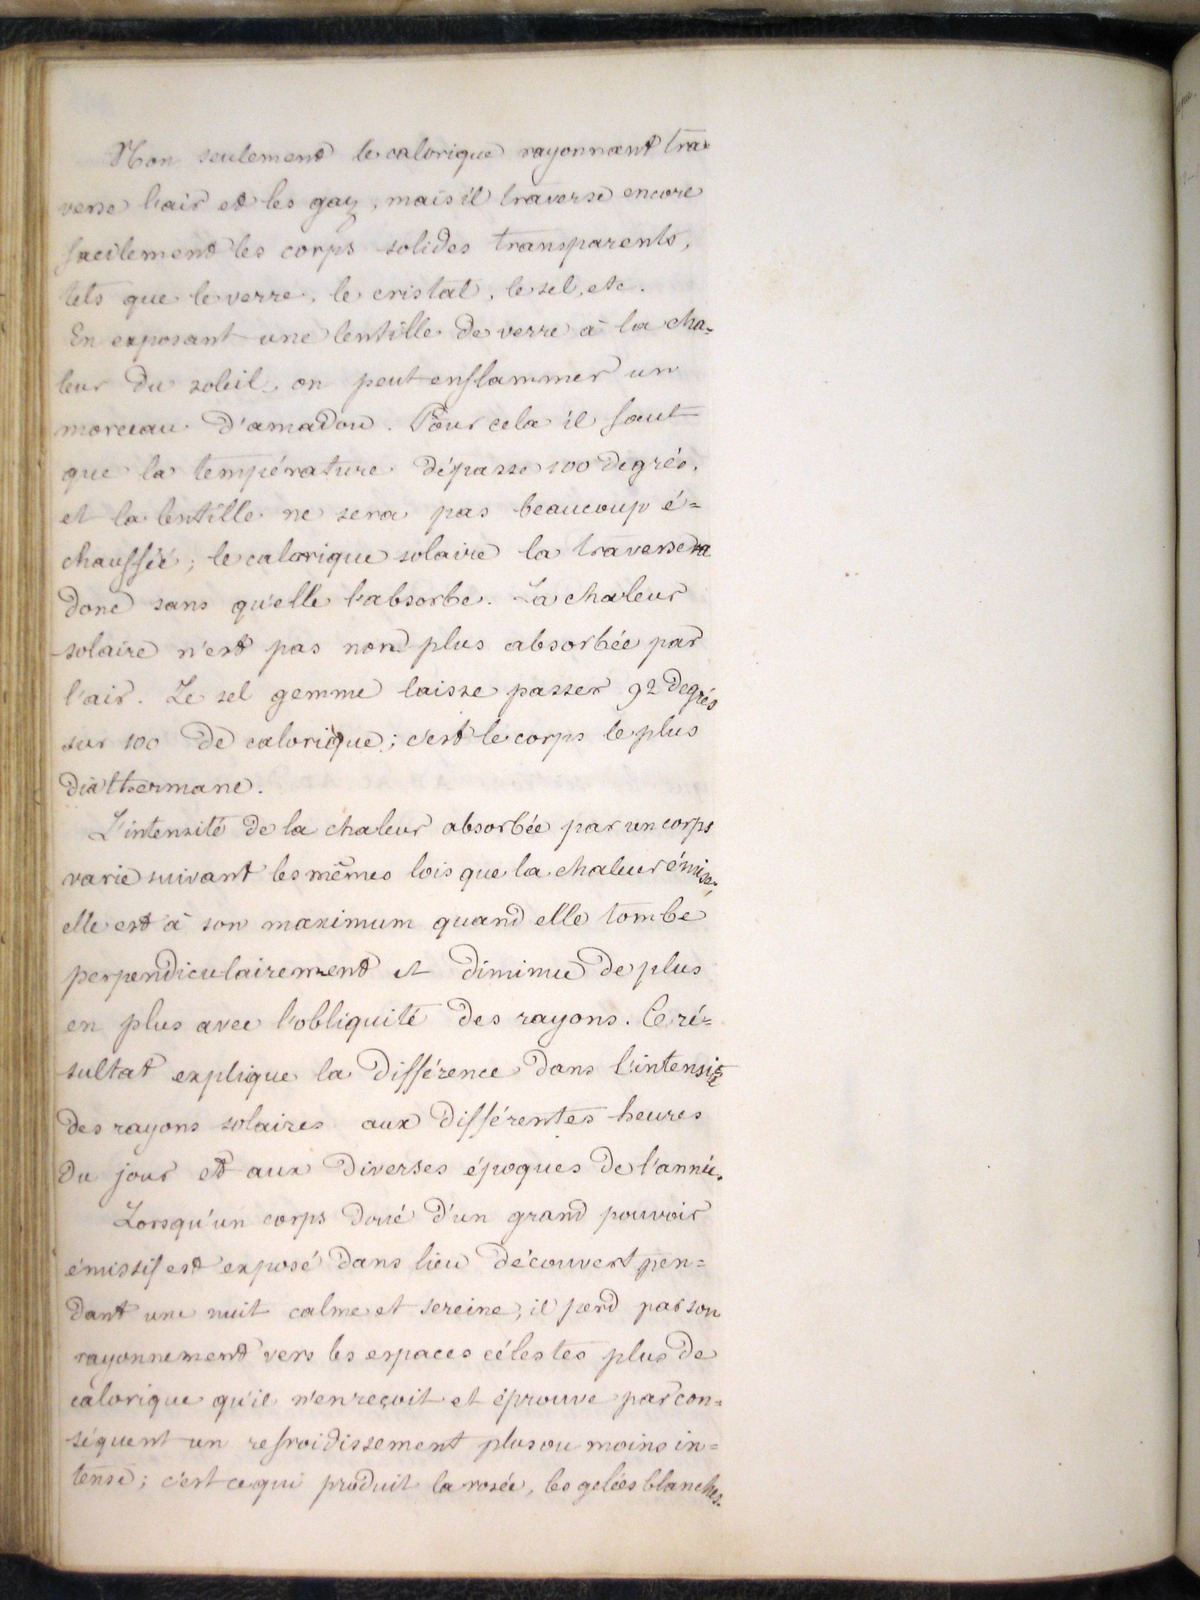 Non seulement le calorique rayonnant tra-
verse l'air et les gaz, mais il traverse encore
facilement les corps solides transparents,
tels que le verre, le cristal, le sel, etc.
En exposant une lentille de verre à la cha=
leur du soleil, on peut enflammer un
morceau d'amadou. Pour cela il faut
que la température dépasse 100 degrés,
et la lentille ne sera pas beaucoup é=
chauffée; le calorique solaire la traversera
donc sans qu'elle l'absorbe. La chaleur
solaire n'est pas non plus absorbée par
l'air. Le sel gemme laisse passer 92 degrés
sur 100 de calorique; c'est le corps le plus
diathermane.
L'intensité de la chaleur absorbée par un corps
varie suivant les mêmes lois que la chaleur émise;
elle est à son maximum quand elle tombe
perpendiculairement et diminue de plus
en plus avec l'obliquité des rayons. Ce ré=
sultat explique la différence dans l'intensité
des rayons solaires aux différentes heures
du jour et aux diverses époques de l'année.
Lorsqu'un corps doué d'un grand pouvoir
émissif est exposé dans lieu découvert pen=
dant une nuit calme et sereine, il perd par son
rayonnement vers les espaces célestes plus de
calorique qu'il n'en reçoit et éprouve par con=
séquent un refroidissement plus ou moins in=
tense; c'est ce qui produit la rosée, les gelées blanches.